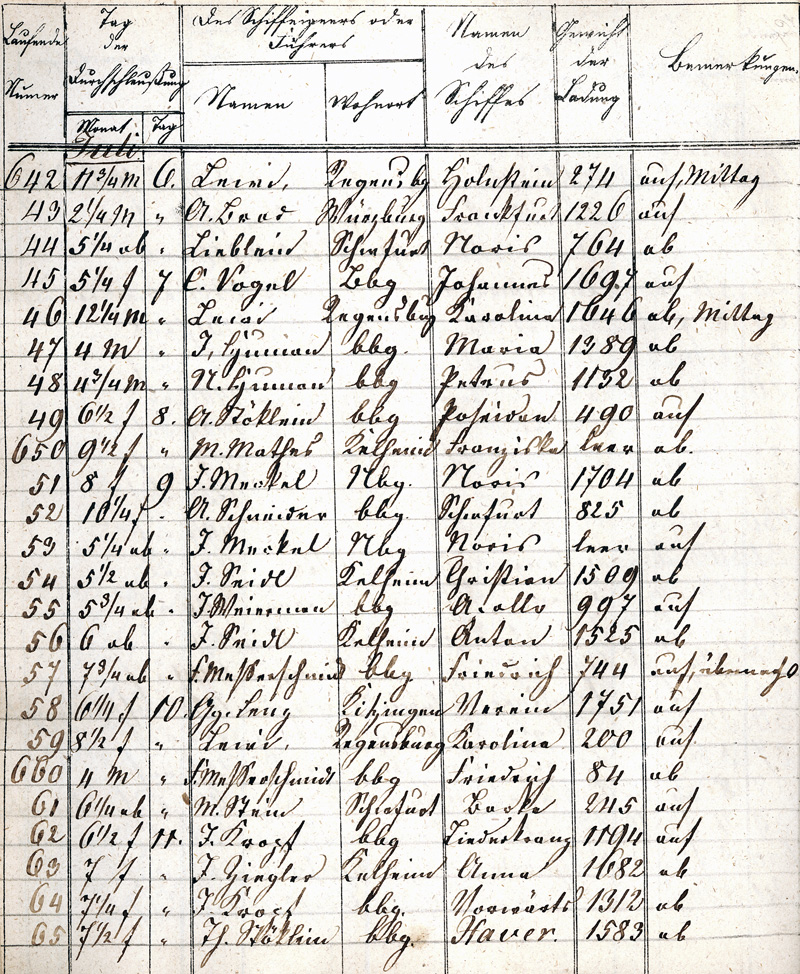 Laufende Numer | Tag der Durchschleußung | Des Schiffeigners oder Führers | Namen des Schiffes | Gewicht der Ladung | Bemerkungen.
Monat: | Tag | Namen | Wohnort
Juli
642 11 3/4 M 6. Leiri, Regensbg Holnstein 274 auf, Mittag
43 2 1/4 M " A. Bros Würzburg Frankfurt 1226 auf
44 5 1/4 ab " Lieblein Schwfurt Noris 764 ab
45 5 1/4 f 7 C. Vogel Bbg Johannes 1697 auf
46 12 1/4 M " Leiri Regensburg Karolina 1646 ab, Mittag
47 4 M " J. Human bbg. Maria 1389 ab
48 4 3/4 M " N. Human bbg Petrus 1132 ab
49 6 1/2 f 8. A. Stöklein bbg Poseidon 490 auf
650 9 1/2 f " M. Mathes Kelheim Franziska leer ab.
51 8 f 9 J. Merkel Nbg. Noris 1704 ab
52 10 1/4 f " A. Schneider bbg. Schwfurt 825 ab
53 5 1/4 ab " J. Merkel Nbg Noris leer auf
54 5 1/2 ab " J. Seidl Kelheim Christian 1509 ab
55 5 3/4 ab " J. Weierman bbg Apollo 997 auf
56 6 ab " J. Seidl Kelheim Anton 1525 ab
57 7 3/4 ab " F. Messerschmidt bbg Friedrich 744 auf,
58 6 1/4 f 10. Gg. Leng Kitzingen Verein 1751 auf
59 8 1/2 f " Leiri, Regensburg Karolina 200 auf
660 4 M " F. Messerschmidt bbg Friedrich 84 ab
61 6 1/4 ab " M. Stein Schwfurt 245 auf
62 6 1/2 f 11. J. Kropf bbg Liederkranz 1194 auf
63 7 f " J. Ziegler Kelheim Anna 1682 ab
64 7 1/4 f " J. Kropf bbg. Vorwärts 1312 ab
65 7 1/2 f " Th. Stöklein bbg. Xaver. 1583 ab